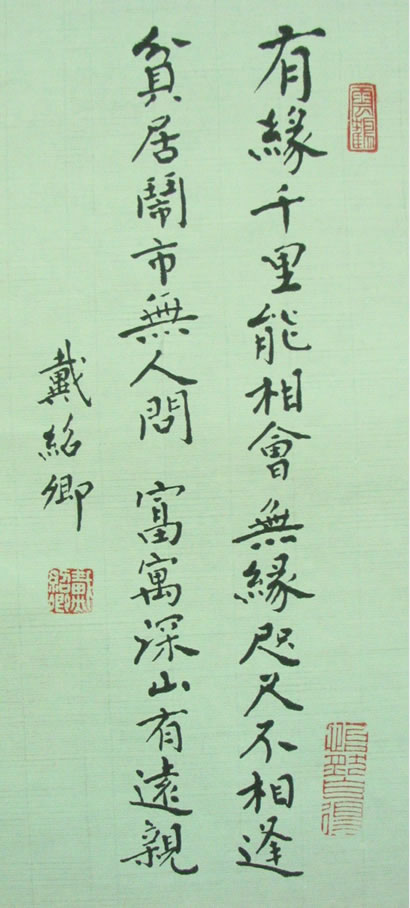 有緣千里能相會無緣咫尺不相逢
貧居鬧市無人問 富寓深山有遠親
戴紹卿
戴紹卿